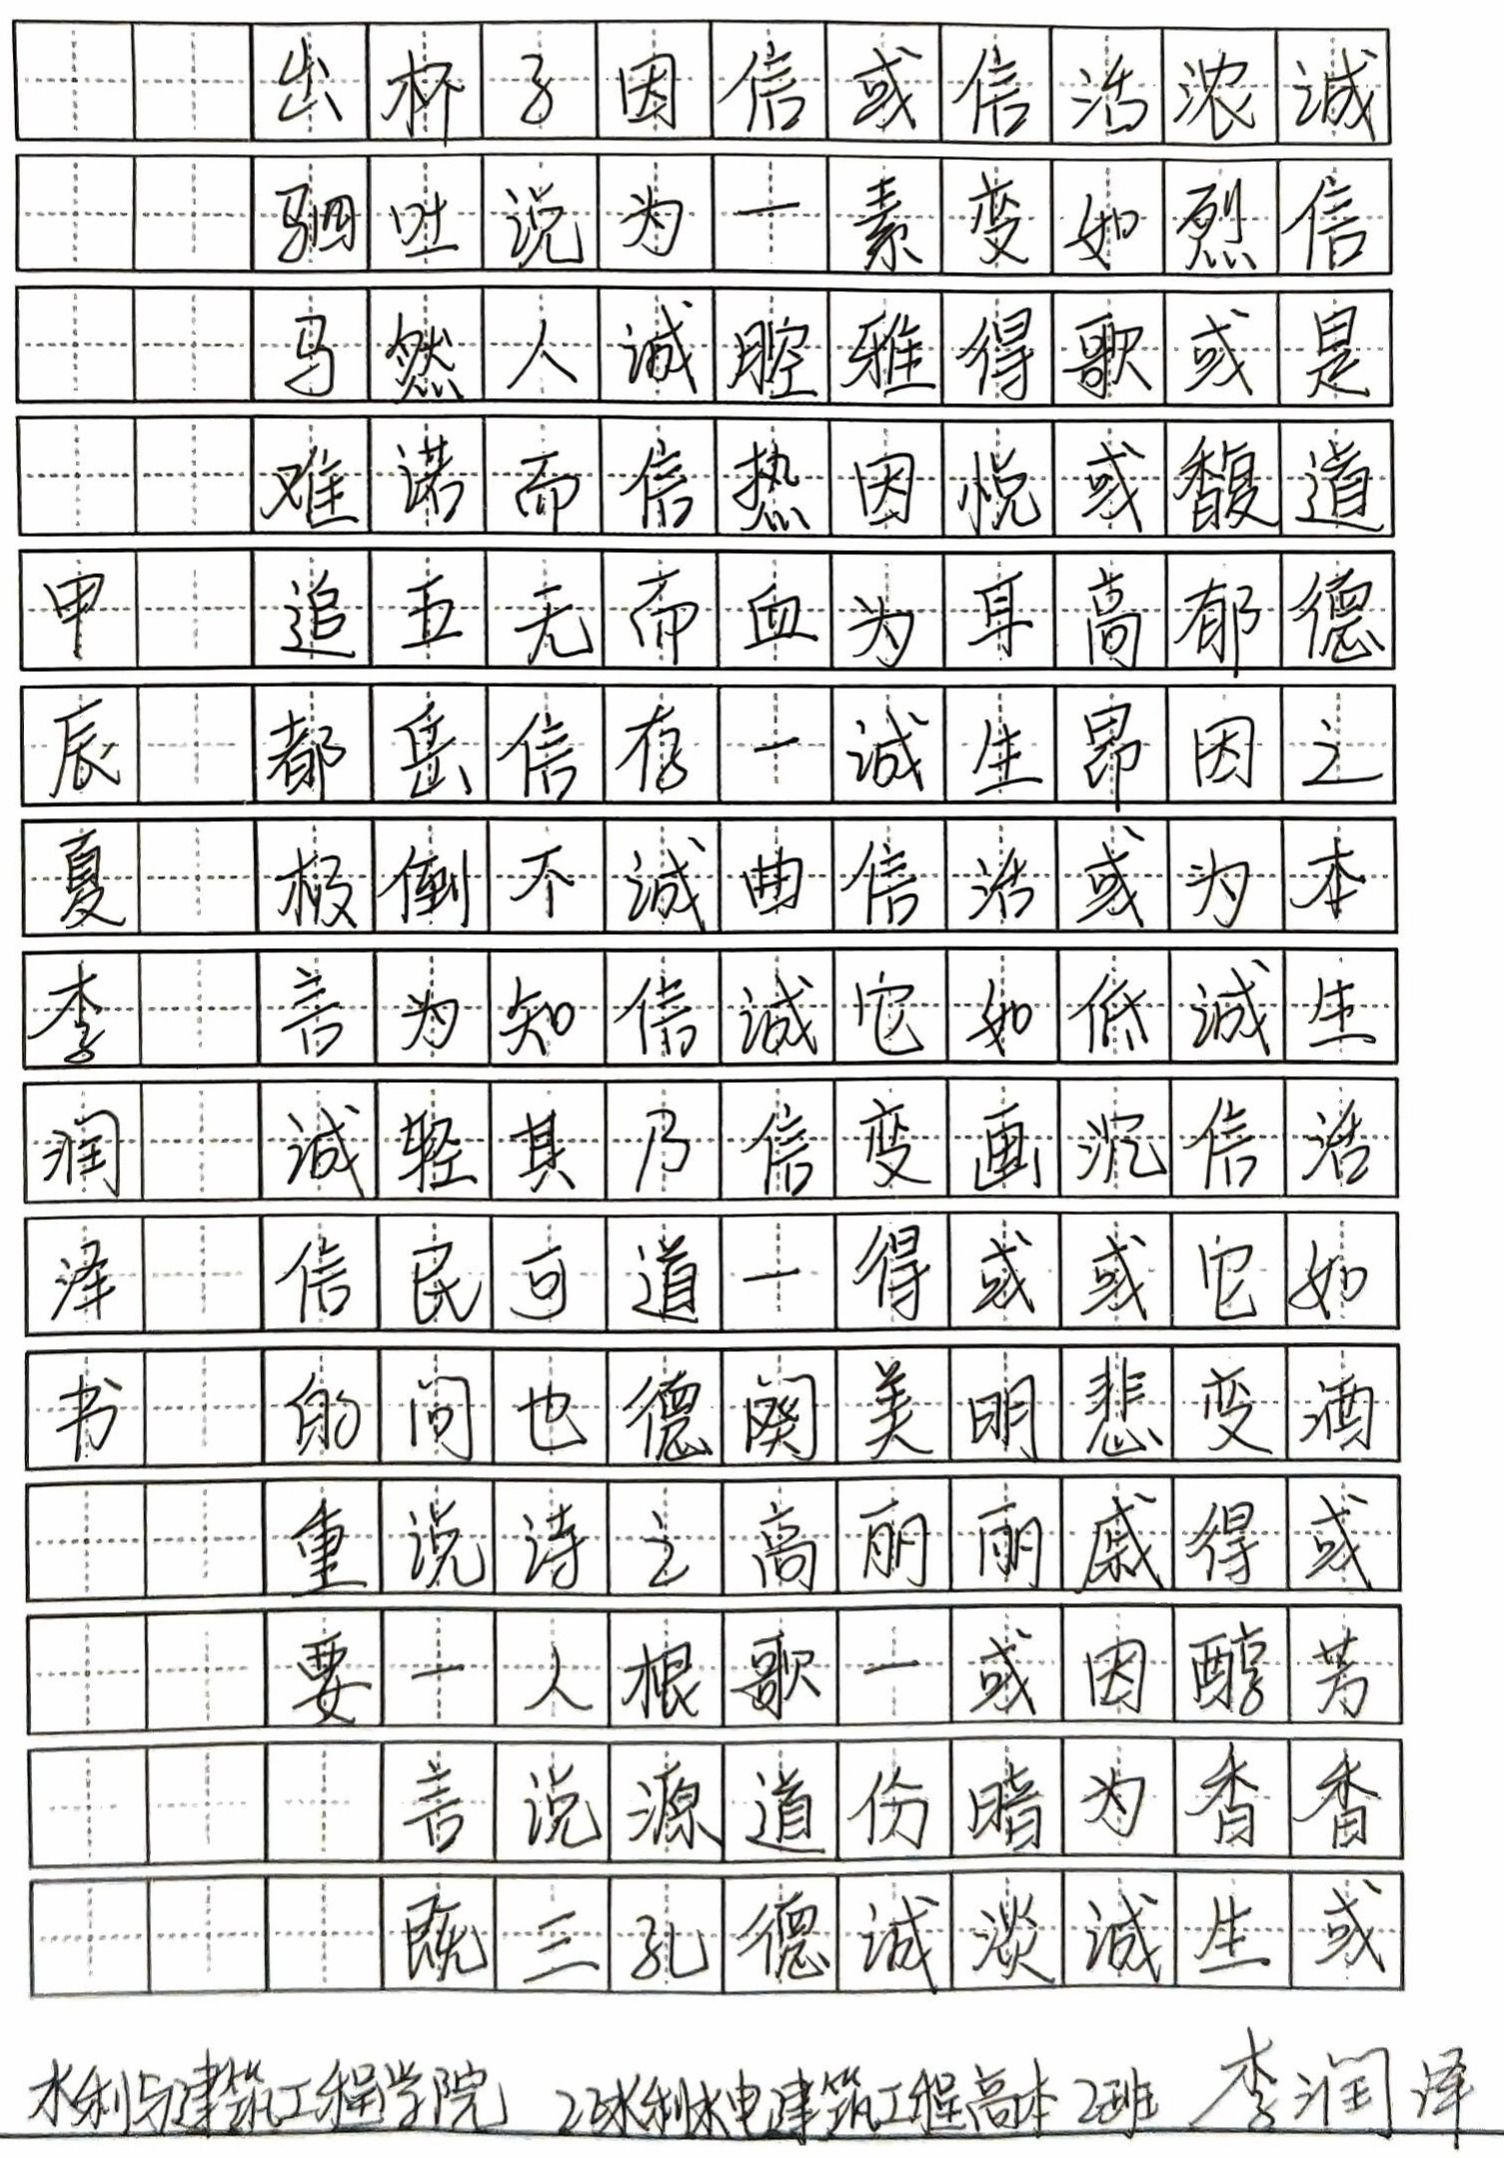 诚信是道德之本生活如酒或芳香或
浓烈或馥郁因为诚信它变得醇香生
活如歌或高昂或低沉或悲戚因为诚
信变得悦耳生活如画或明丽或暗淡
或素雅因为诚信它变得美丽一份诚
信一腔热血一曲诚信一阕高歌道德
因为诚信而存诚信乃道德之根源孔
子说人而无信不知其可也诗人说三
杯吐然诺五岳倒为轻民间说一言既
出驷马难追都极言诚信的重要
甲辰夏李润泽书
水利与建筑工程学院 22水利水电建筑工程高本2班 李润泽